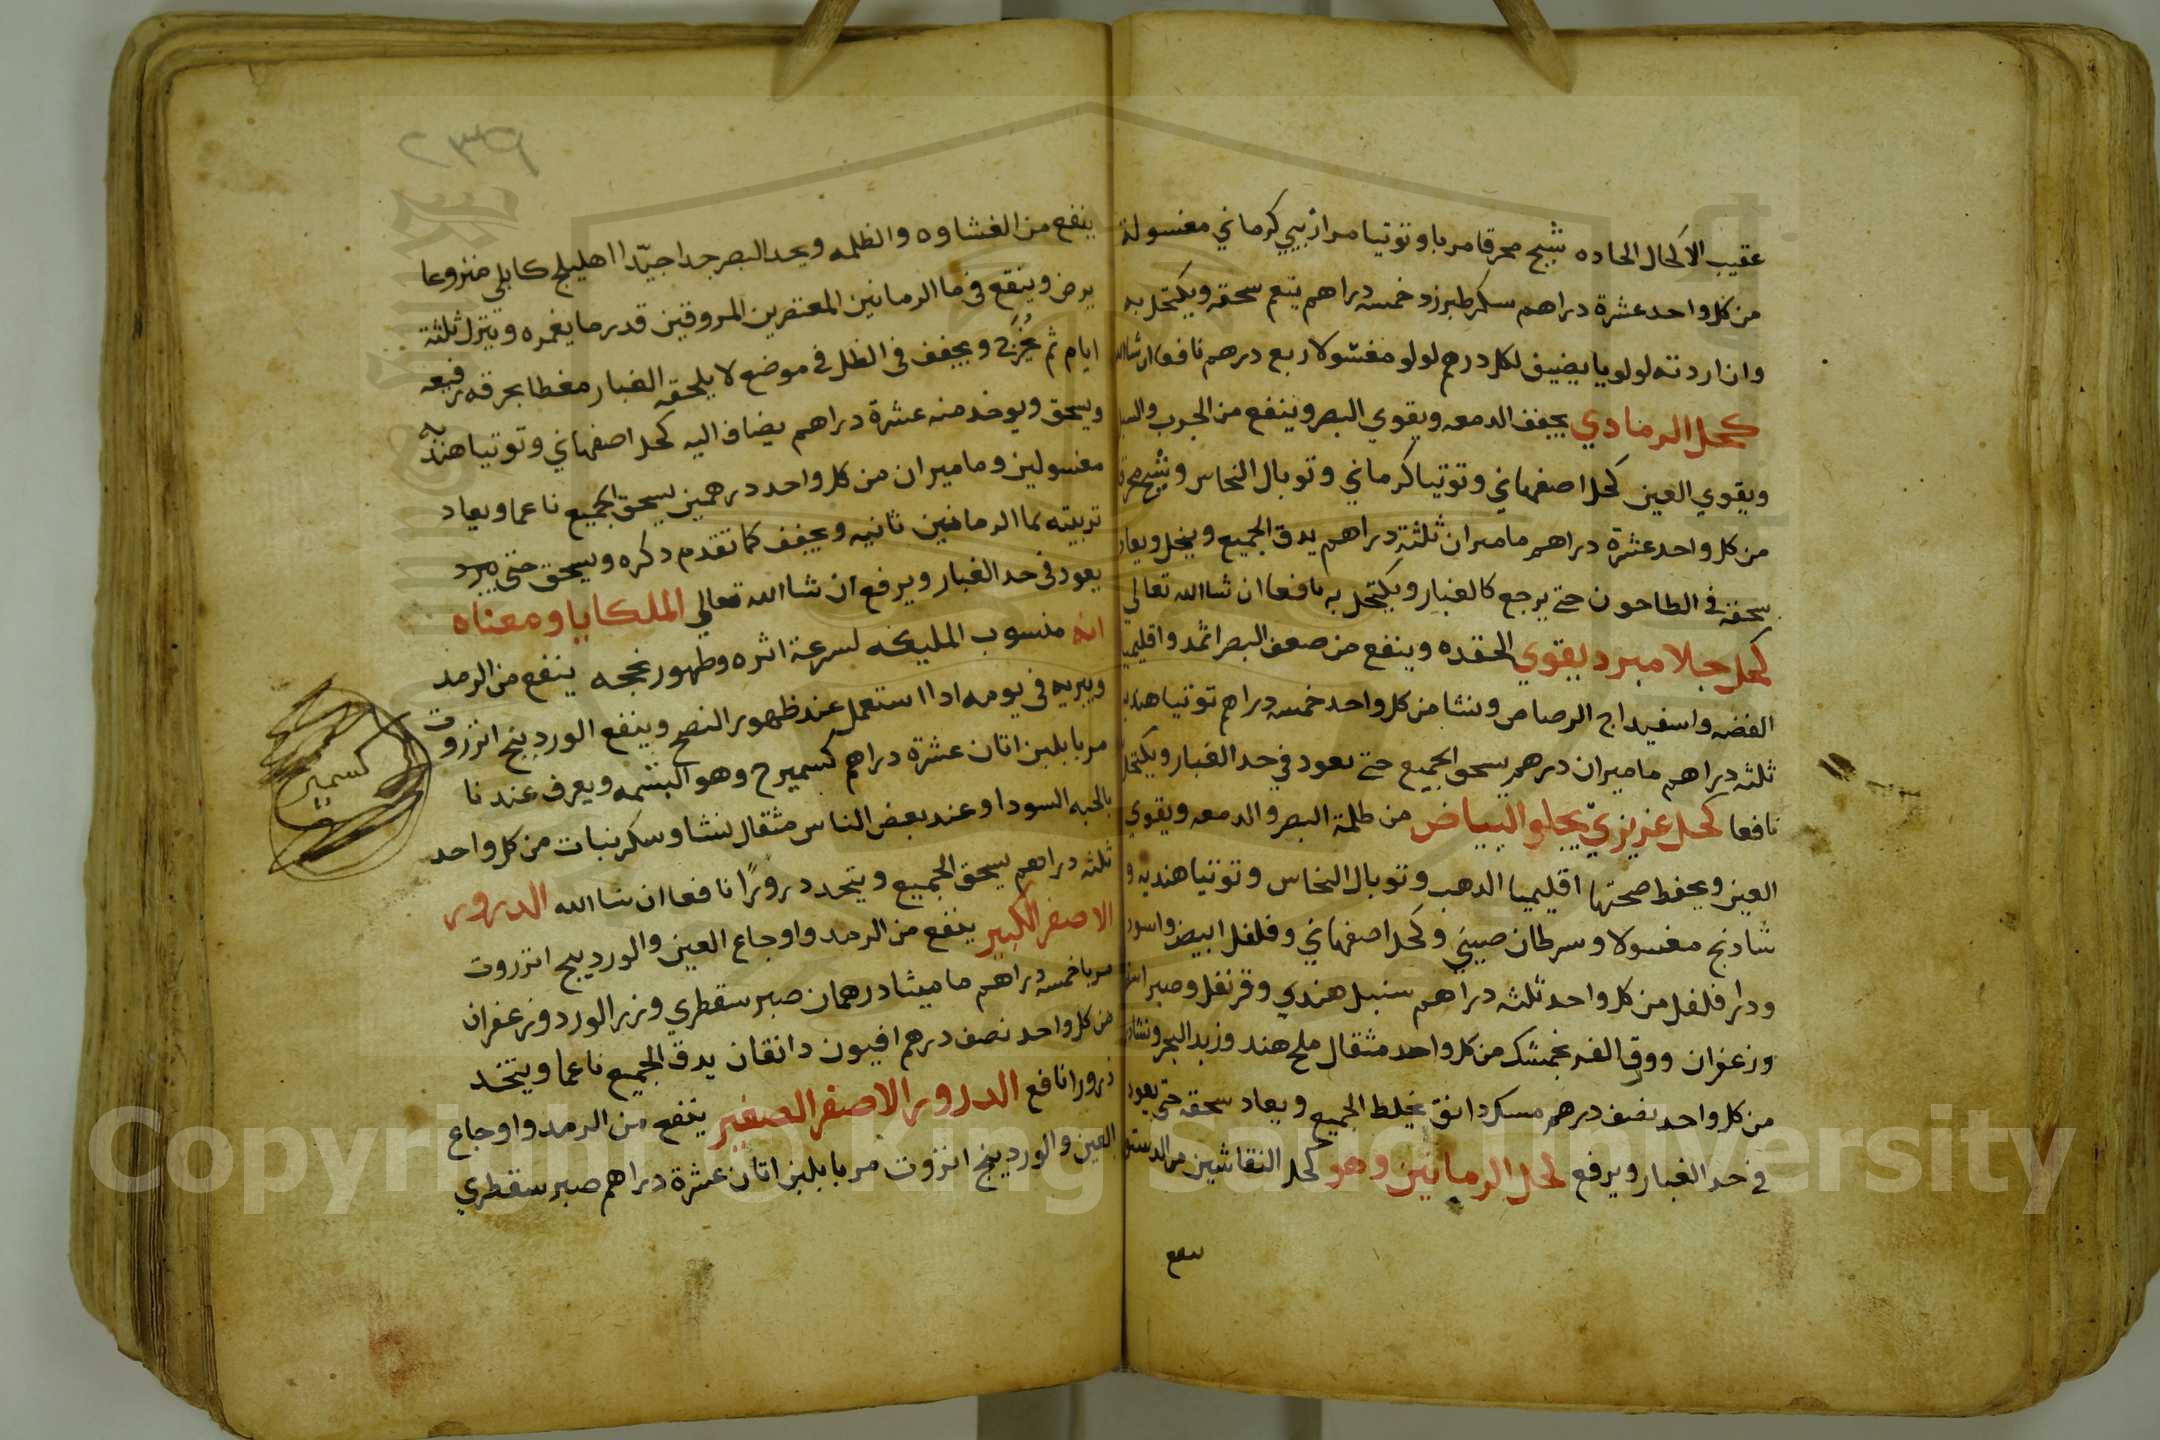 عقيب الاكحال الحاده شبح محرقا مربا وتوتيا مرازيبي كرماني مغسولة
من كل واحد عشرة دراهم سكر طبرزد خمسه دراهم ينعم سحقه ويكتحل به
وان اردته لولويا يضيف لكل درهم لولو مغسولا ربع درهم نافع ان شا الله
كحل الرمادي يجفف الدمعه ويقوي البصر وينفع من الجرب والسبل
ويقوي العين كحل اصفهاني وتوتيا كرماني وتوبال النحاس وشبح محرقا
من كل واحد عشرة دراهم ماميران ثلثة دراهم يدق الجميع وينخل ويعاد
سحقه في الطاحون حتي يرجع كالغبار ويكتحل به نافعا ان شا الله تعالي
كحل جلا مبرد يقوي الحقده وينفع من ضعف البصر اثمد واقليميا
الفضه واسفيداج الرصاص ونشا من كل واحد خمسه دراهم توتيا هنديه
ثلثه دراهم ماميران درهم يسحق الجميع حتي يعود في حد الغبار ويكتحل
نافعا كحل عزيزي يجلو البياض من ظلمة البصر والدمعه ويقوي
العين ويحفظ صحتها اقليميا الدهب وتوبال النحاس وتوتيا هنديه و
شادنج مغسولا وسرطان صيني وكحل اصفهاني وفلفل ابيض واسود
ودار فلفل من كل واحد ثلثه دراهم سنبل هندي وقرنفل وصبر
وزعفران وورق الفرنجمشك من كل واحد مثقال ملح هند وزبد البحر ونشادر
من كل واحد نصف درهم مسك دانق يخلط الجميع ويعاد سحقه حتي يعود
في حد الغبار ويرفع كحل الرمانين وهو كحل النقاشين من الدستور
ينفع
ينفع من الغشاوه والظلمه ويحد البصر جدا جيدا اهليلج كابلي منزوعا
يرض وينقع في ما الرمانين المعتصرين المروقين قدر ما يغمره ويترك ثلثة
ايام ثم يخرج ويجفف في الظل في موضع لا يلحقه الغبار مغطا بخرقه رفيعه
ويسحق ويوخد منه عشرة دراهم يضاف اليه كحل اصفهاني وتوتيا هنديه
مغسولين وماميران من كل واحد درهمين يسحق الجميع ناعما ويعاد
تربيته بما الرمانين ثانيه ويجفف كما تقدم دكره ويسحق حتي يبرد
يعود في حد الغبار ويرفع ان شا الله تعالي الملكايا ومعناه
انه منسوب المليكه لسرعة اثره وظهور نجحه ينفع من الرمد
ويبريه في يومه ادا استعمل عند ظهور النضج وينفع الوردينج انزروت
مربا بلبن اتان عشرة دراهم كسميرج وهو البشمه ويعرف عندنا
بالحبه السودا وعند بعض الناس مثقال نشا وسكر نبات من كل واحد
ثلثه دراهم يسحق الجميع ويتحد درورًا نافعا ان شا الله الدرور
الاصفر الكبير ينفع من الرمد واوجاع العين والوردينج انزروت
مربا خمسه دراهم ماميثا درهمان صبر سقطري وبزر الورد وزعفران
من كل واحد نصف درهم افيون دانقان يدق الجميع ناعما ويتخد
درورا نافع الدرور الاصفر الصغير ينفع من الرمد واوجاع
العين والوردينج انزروت مربا بلبن اتان عشرة دراهم صبر سقطري
كسميرج